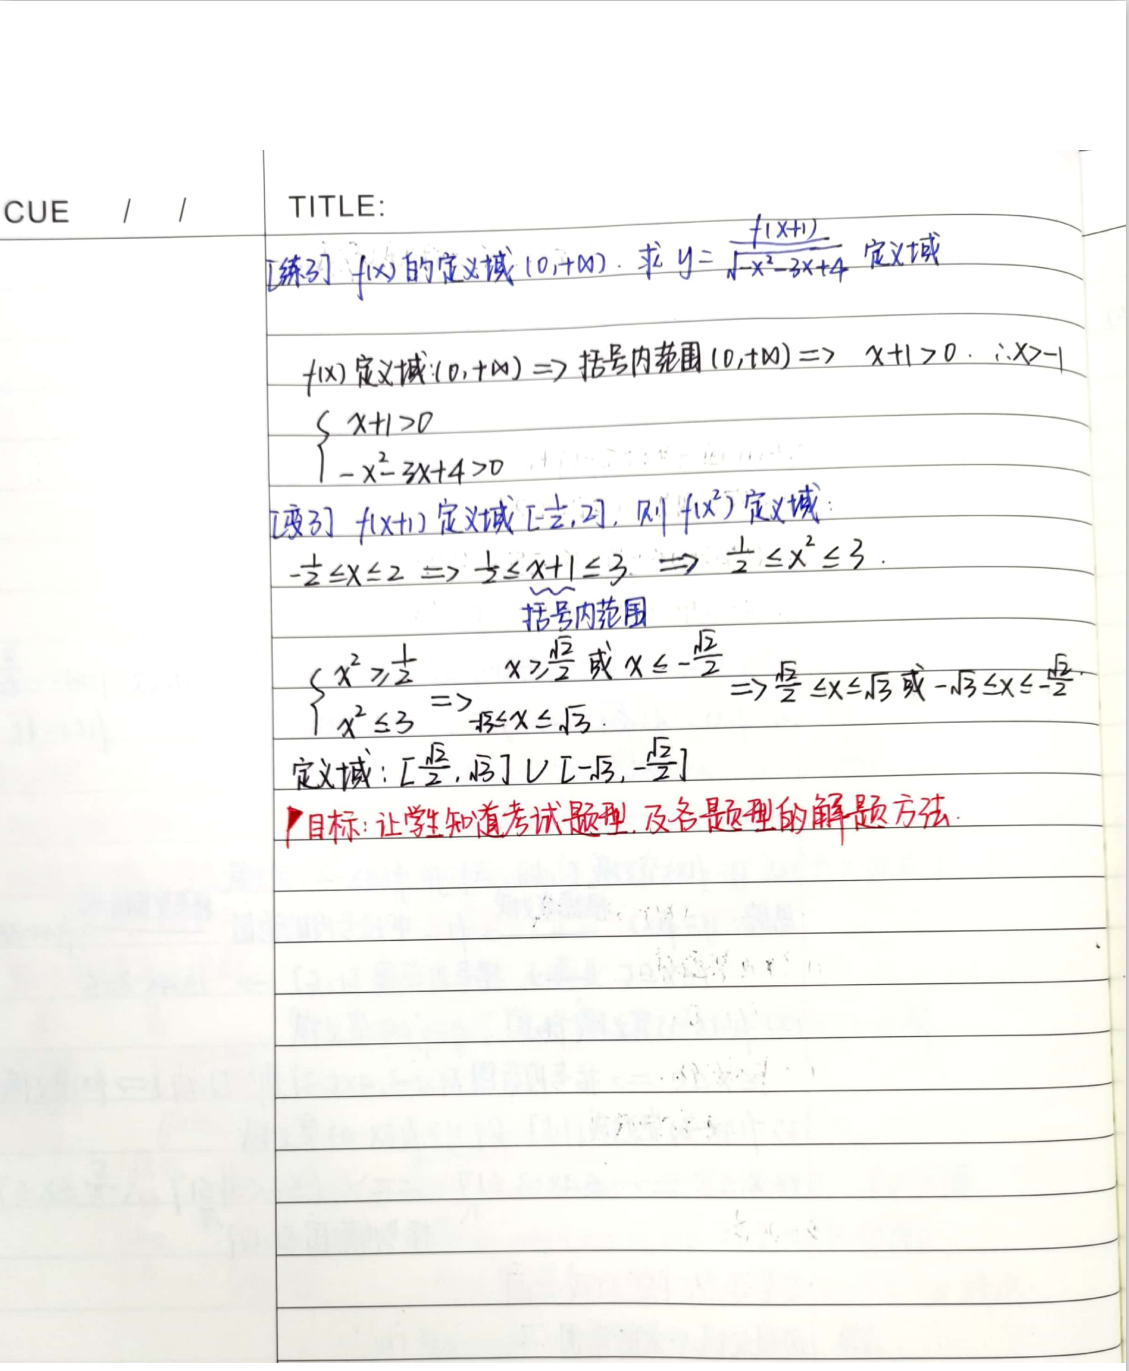 CUE / /
TITLE:
[练3] f(x)的定义域(0,+∞). 求 y = f(x+1)/√(-x²-3x+4) 定义域
f(x)定义域:(0,+∞) => 括号内范围(0,+∞) => x+1>0. ∴x>-1
{ x+1>0
-x²-3x+4>0
[变3] f(x+1)定义域[-1/2,2], 则f(x²)定义域:
-1/2≤x≤2 => 1/2≤x+1≤3 => 1/2≤x²≤3.
括号内范围
{ x²≥1/2 x≥√2/2 或 x≤-√2/2
x²≤3 => -√3≤x≤√3 => √2/2≤x≤√3 或 -√3≤x≤-√2/2.
定义域: [√2/2,√3]∪[-√3,-√2/2]
目标: 让学生知道考试题型, 及各题型的解题方法.